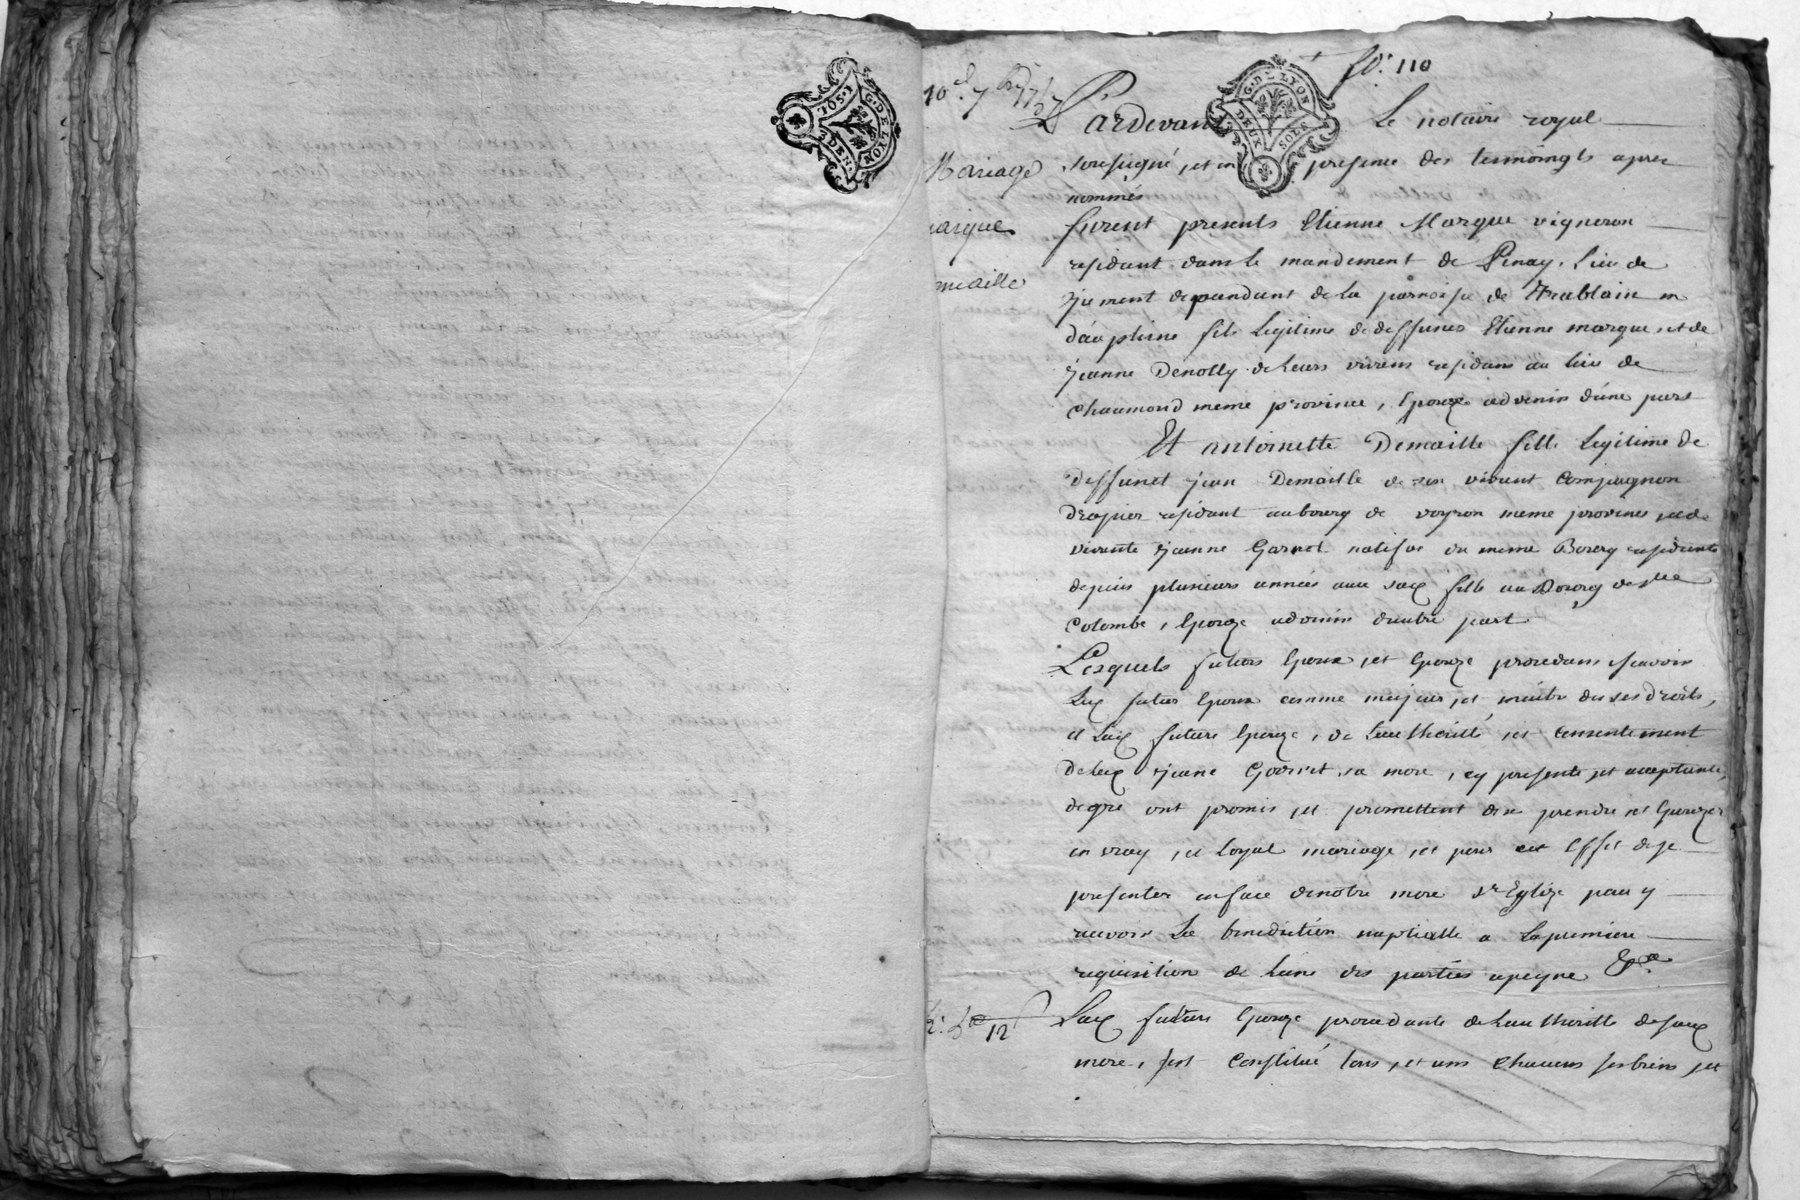 G. DE LYON
fo. 110
Pardevant Le notaire royal
Mariage soussigné, et en presence des temoingts apres
nommés
furent presents Etienne Marque vigneron
residant dans le mandement de Pinay, Lieu de
dependant de la parroisse de en
dauphine fils Legitime de deffunct Etienne marque, et de
jeanne Denolly de leurs vivans residans au lieu de
Chaumond meme province, Epoux advenir d'une part
Et antoinette Demaille fille Legitime de
deffunct jean Demaille de son vivant Compagnon
drapier residant au bourg de voyron meme province, et de
vivante jeanne Garnet native du meme Bourg residante
depuis plusieurs années avec saditte fille au Bourg de ste
Colombe, Epouze advenir d'autre part
Lesquels futurs Epoux, et Epouze procedans scavoir
futur Epoux comme majeur, et maitre de ses droits,
et future Epouze, de L'autthorité, et consentement
de jeane Garnet, sa mere, cy presente, et acceptante,
de gré ont promis, et promettent de se prendre et Epouzer
en vray, et Loyal mariage, et pour cet Effet de se
presenter en face de notre mere Ste Eglize pour y
recevoir La benediction nuptialle a La premiere
requisition de L'une des parties a peyne
12 future Epouze procedante de L'autthorité de
mere, s'est Constitué tous, et uns Chacuns ses biens, et